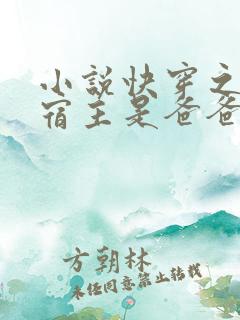 小说快穿之
宿主是爸爸
方朝林
未经同意禁止转载